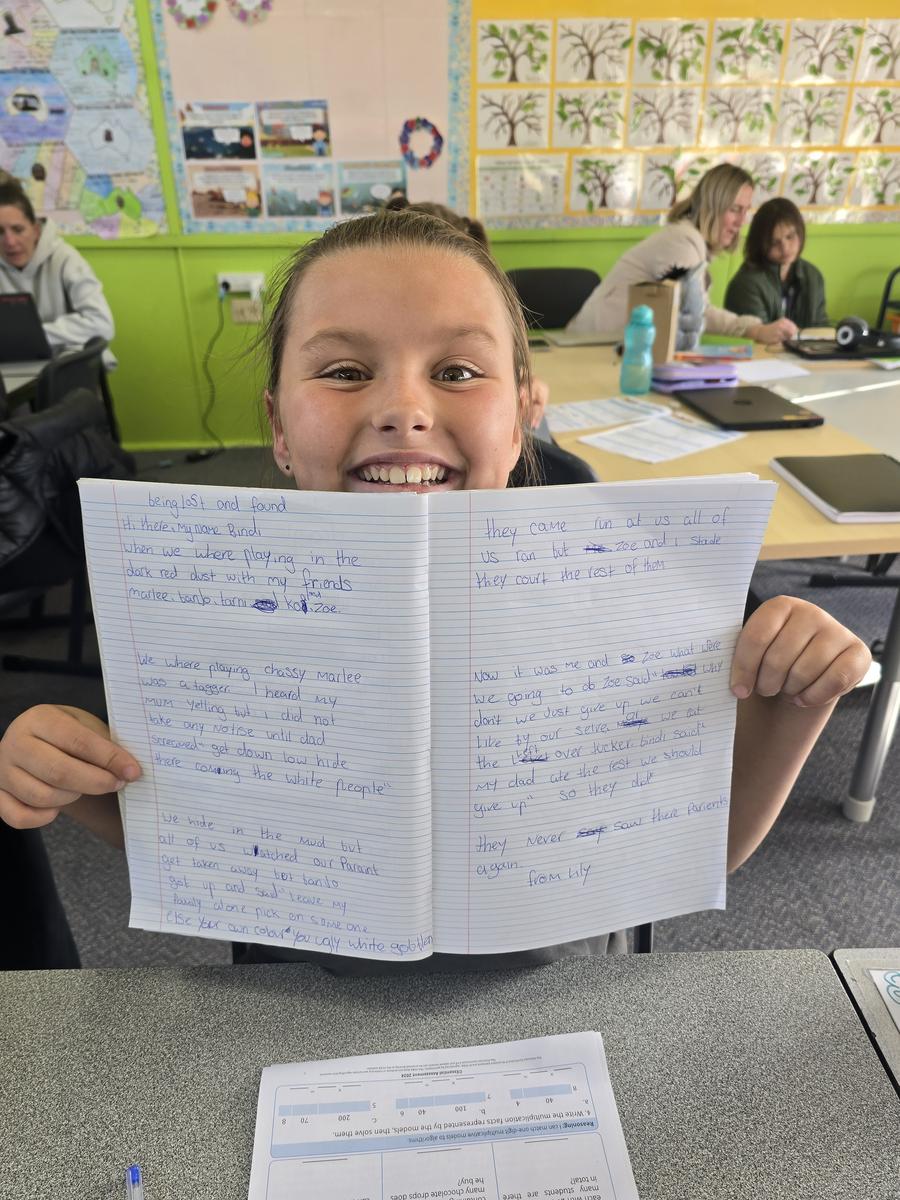 being lost and found
Hi there, My name Bindi
when we where playing in the
dark red dust with my friends
marlee, banjo, tarni Zoe.
We where playing chassy Marlee
was a tagger I heard my
mum yelling but I did not
take any notise until dad
screamed" get down low hide
there coming the white people"
We hide in the mud but
all of us watched our Paraint
get taken away but banjo
got up and said" leave my
family alone pick on some one
else your own colour" you ugly white goblen
they came run at us all of
us ran but Zoe and i
they court the rest of them
Now it was me and Zoe what were
we going to do Zoe said" why
don't we Just give up we can't
like by our selve, we eat
the left over tucker. bindi said"
my dad ate the rest we should
give up" so they did"
they Never saw there Parients
again.
from Lily
4. Write the multiplication facts represented by the models, then solve them.
a.
b.
c.
40
8
4
100
40
7
6
200
70
8
5
Reasoning: I can match one-digit multiplicative models to algorithms
©Essential Assessment 2024
each with
many students are there
in total?
many chocolate drops does
he buy?